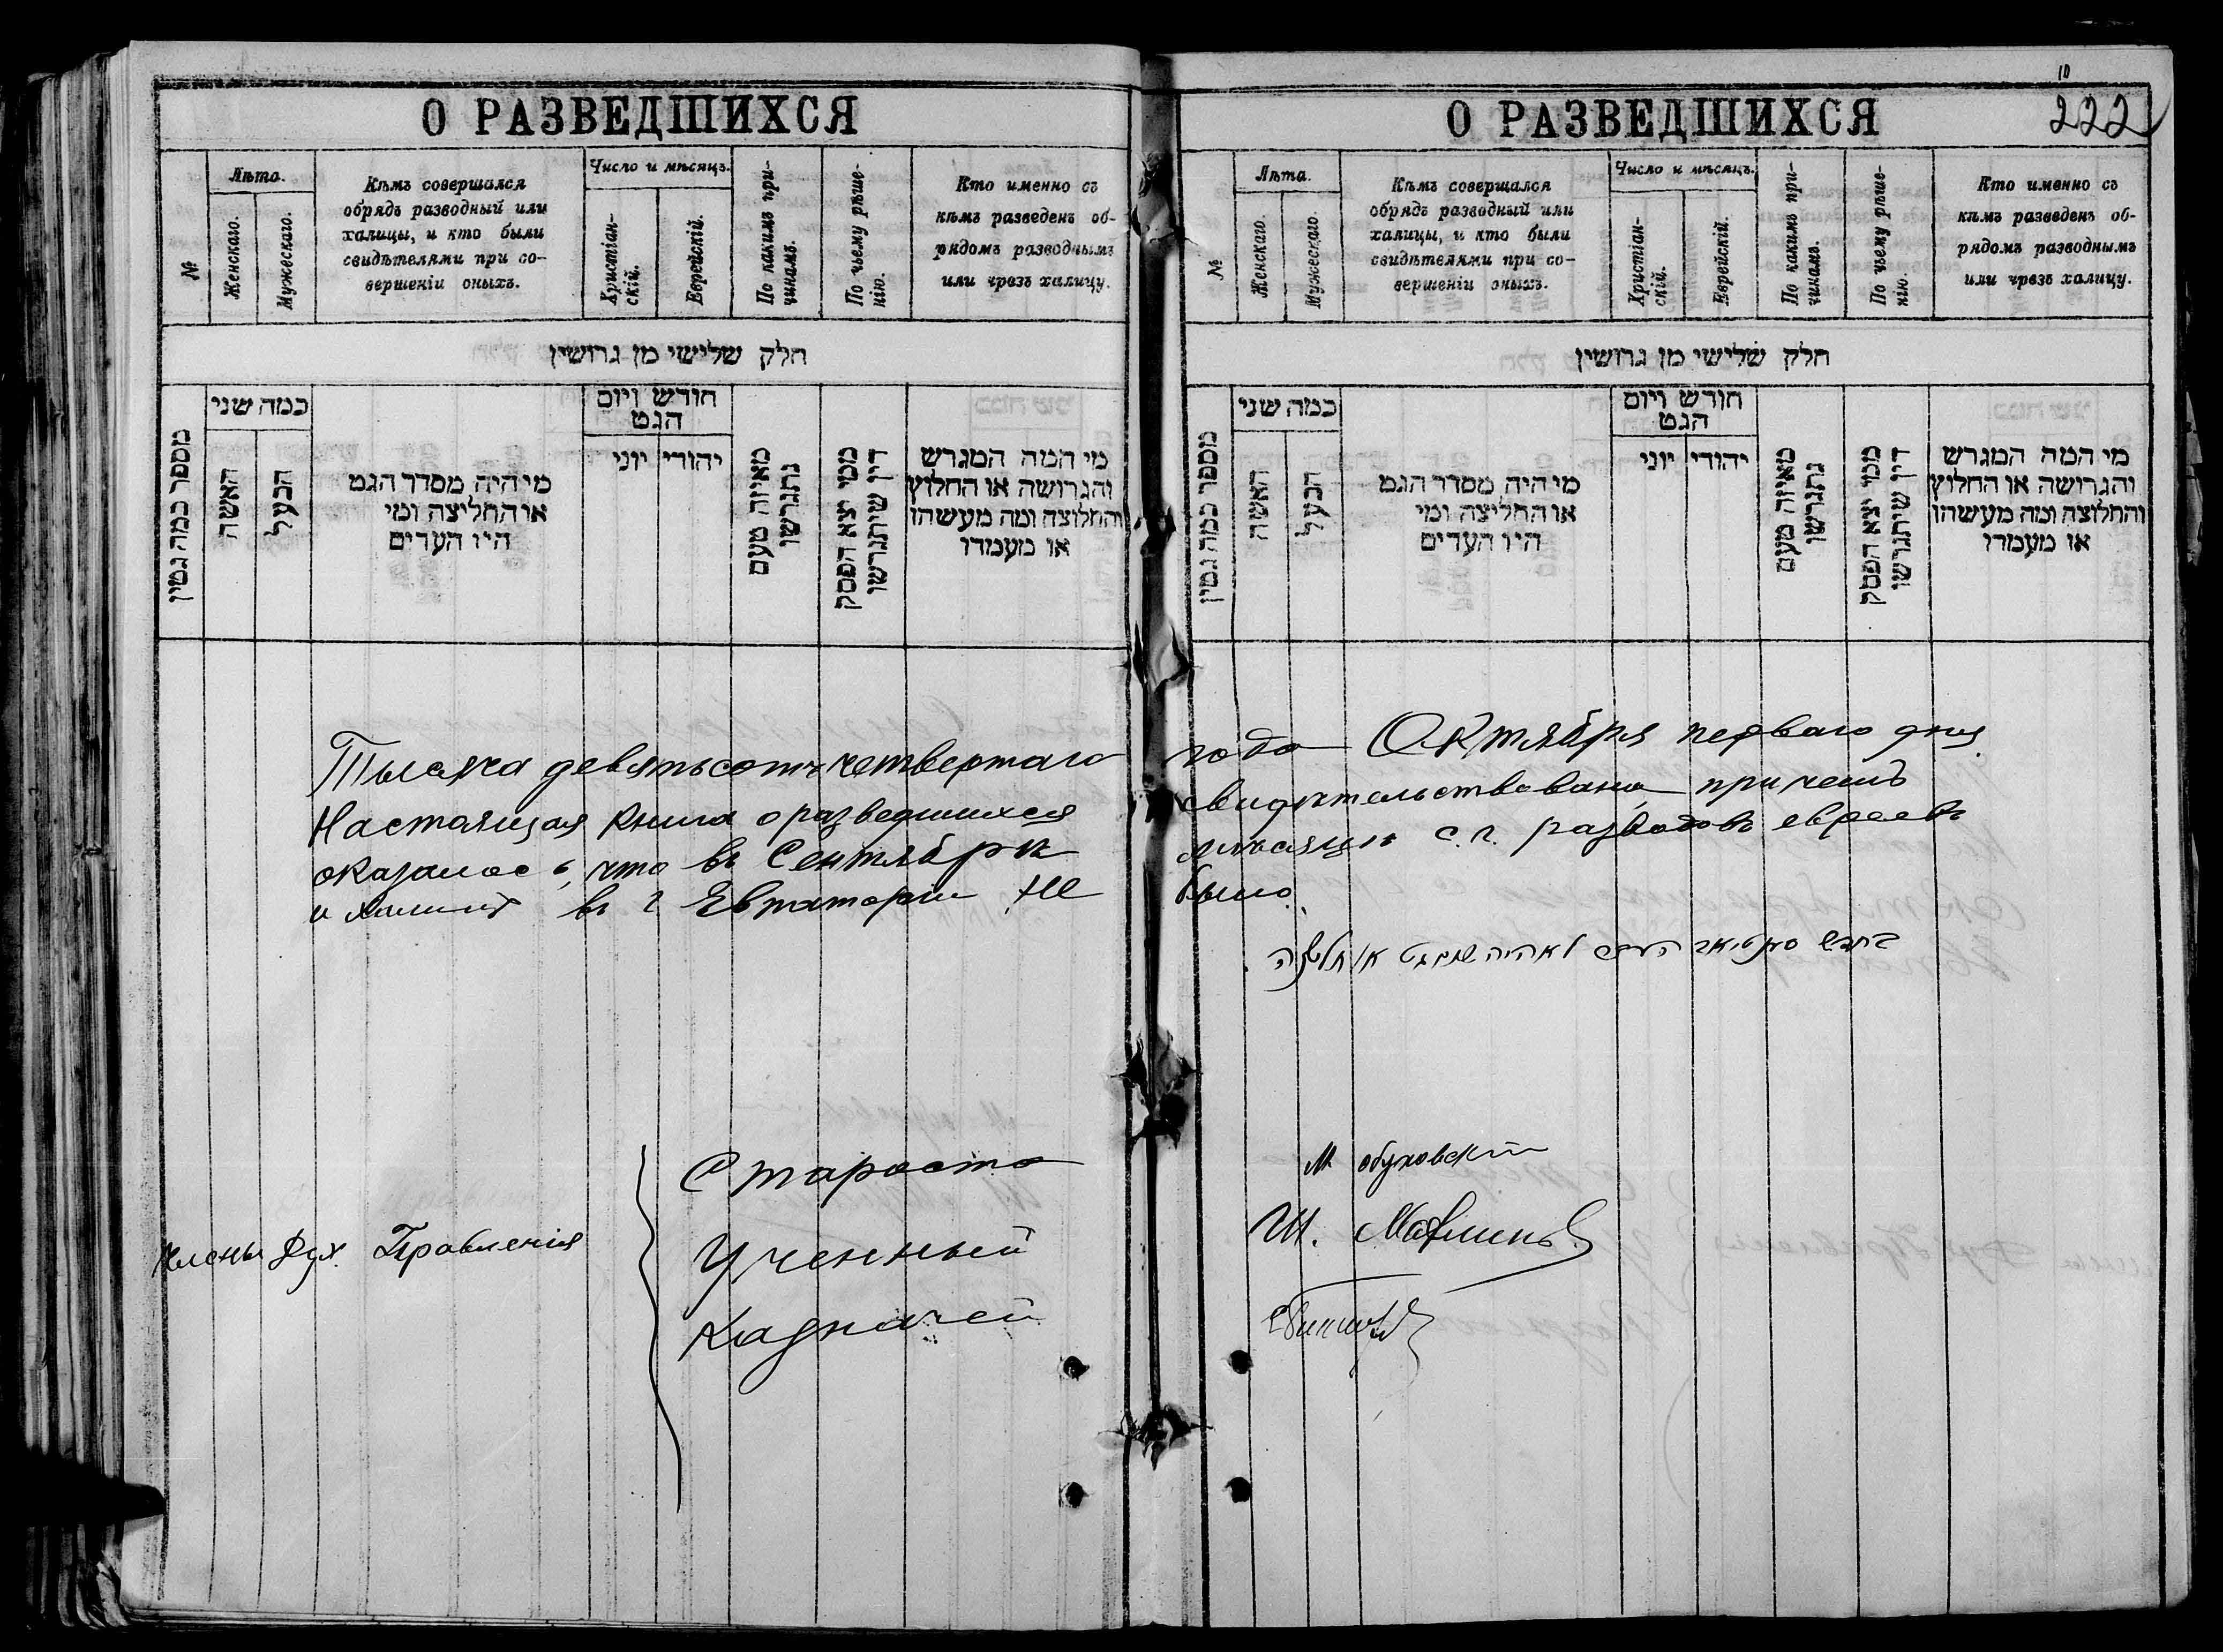 О РАЗВЕДШИХСЯ
№
Лѣта.
Женскаго.
Мужескаго.
Кѣмъ совершался
обрядъ разводный или
халицы, и кто были
свидѣтелями при со-
вершеніи оныхъ.
Число и мѣсяцъ.
Христіан-
скій.
Еврейскій.
По какимъ при-
чинамъ.
По чьему рѣше-
нію.
Кто именно съ
кѣмъ разведенъ об-
рядомъ разводнымъ
или чрезъ халицу.
חלק שלישי מן גרושין
מספר כמה גטין
כמה שני
האשה
הבעל
מי היה מסדר הגט
או החליצה ומי
היו העדים
חודש ויום
הגט
יהודי
יוני
מאיזה טעם
נתגרשו
ממי יצא הפסק
דין שיתגרשו
מי המה המגרש
והגרושה או החלוץ
והחלוצה ומה מעשהו
או מעמדו
Тысяча девятьсотъ четвертаго
Настоящая книга о разведшихся
оказалось, что въ Сентябрѣ
и халицъ въ г. Евпаторіи не
Члены Дух. Правленія
Староста
Ученный
Казначей
10
222
О РАЗВЕДШИХСЯ
№
Лѣта.
Женскаго.
Мужескаго.
Кѣмъ совершался
обрядъ разводный или
халицы, и кто были
свидѣтелями при со-
вершеніи оныхъ.
Число и мѣсяцъ.
Христіан-
скій.
Еврейскій.
По какимъ при-
чинамъ.
По чьему рѣше-
нію.
Кто именно съ
кѣмъ разведенъ об-
рядомъ разводнымъ
или чрезъ халицу.
חלק שלישי מן גרושין
מספר כמה גטין
כמה שני
האשה
הבעל
מי היה מסדר הגט
או החליצה ומי
היו העדים
חודש ויום
הגט
יהודי
יוני
מאיזה טעם
נתגרשו
ממי יצא הפסק
דין שיתגרשו
מי המה המגרש
והגרושה או החלוץ
והחלוצה ומה מעשהו
או מעמדו
года Октября перваго дня
свидѣтельствована, причемъ
мѣсяцѣ с. г. разводовъ евреевъ
было.
М Обуховскій
Ш.